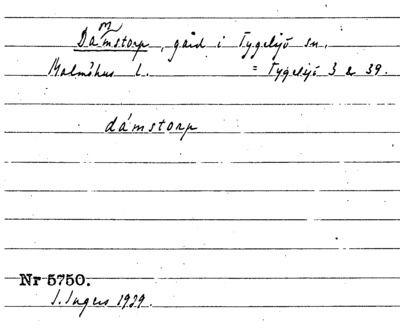 Dammstorp, gård i Tygelsjö sn.
Malmöhus l. = Tygelsjö 3 & 39.
dámstorp
Nr 5750.
I. Ingers 1929.